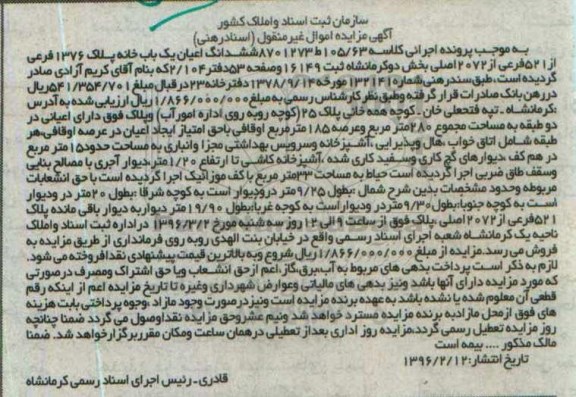 سازمان ثبت اسناد و املاک کشور
آگهی مزایده اموال غیرمنقول (اسنادرهنی)
به موجب پرونده اجرائی کلاسه ۱۰۵/۶۳ط۸۷۰۱۲۷۳ ششدانگ اعیان یک باب خانه پلاک ۱۳۷۶ فرعی
از ۵۲۱فرعی از ۲۰۷۲اصلی بخش دوکرمانشاه ثبت ۱۶۱۴۹وصفحه ۵۳دفتر ۲/۱۰۴که بنام آقای کریم آزادی صادر
گردیده است، طبق سندرهنی شماره ۱۳۲۱۴۱ مورخه ۱۳۷۸/۹/۱۴ دفترخانه ۲۳درقبال مبلغ ۵۴۱/۳۵۴/۷۰۱ریال
دررهن بانک صادرات قرار گرفته وطبق نظر کارشناس رسمی به مبلغ ۱/۸۶۶/۰۰۰/۰۰۰ریال ارزیابی شده به آدرس
:کرمانشاه ـ تپه فتحعلی خان ـ کوچه همه خانی پلاک ۲۵(کوچه روبه روی اداره امورآب) وپلاک فوق دارای اعیانی در
دو طبقه به مساحت مجموع ۲۸۰متر مربع وعرصه ۱۸۵مترمربع اوقافی باحق امتیاز ایجاد اعیان در عرصه اوقافی،هر
طبقه شامل اتاق خواب ،هال وپذیرایی ،آشپزخانه وسرویس بهداشتی مجزا وانباری به مساحت حدود۱۵متر مربع
در هم کف ،دیوارهای گچ کاری وسفید کاری شده ،آشپزخانه کاشی تا ارتفاع ۱/۲۰متر،دیوار آجری با مصالح بنایی
وسقف طاق ضربی اجرا گردیده است حیاط به مساحت ۳۳متر مربع با کف موزائیک اجرا گردیده است با حق انشعابات
مربوطه وحدود مشخصات بدین شرح شمال :بطول ۹/۲۵متر درودیوار است به کوچه شرقا :بطول ۲۰متر در ودیوار
است به کوچه جنوبا:بطول ۹/۳۰متردر ودیوار است به کوچه غربا:بطول ۱۹/۹۰متر دیوار به دیوار باقی مانده پلاک
۵۲۱فرعی از ۲۰۷۲اصلی ،پلاک فوق از ساعت ۹الی ۱۲روز سه شنبه مورخ ۱۳۹۶/۳/۲ دراداره ثبت اسناد واملاک
ناحیه یک کرمانشاه شعبه اجرای اسناد رسمی واقع در خیابان بنت الهدی روبه روی فرمانداری از طریق مزایده به
فروش می رسد.مزایده از مبلغ ۱/۸۶۶/۰۰۰/۰۰۰ریال شروع وبه بالاترین قیمت پیشنهادی نقدا فروخته می شود.
لازم به ذکر است پرداخت بدهی های مربوط به آب،برق،گاز،اعم ازحق انشعاب ویا حق اشتراک ومصرف درصورتی
که مورد مزایده دارای آنها باشد ونیز بدهی های مالیاتی وعوارض شهرداری وغیره تا تاریخ مزایده اعم از اینکه رقم
قطعی آن معلوم شده یا نشده باشد به عهده برنده مزایده است ونیزدر صورت وجود مازاد ،وجوه پرداختی بابت هزینه
های فوق ازمحل مازادبه برنده مزایده مسترد خواهد شد ونیم عشروحق مزایده نقدا وصول می گردد ضمنا چنانچه
روز مزایده تعطیل رسمی گردد،مزایده روز اداری بعداز تعطیلی درهمان ساعت ومکان مقرربرگزار خواهد شد. ضمنا
مالک مذکور .... بیمه است
تاریخ انتشار: ۱۳۹۶/۲/۱۲
قادری ـ رئیس اجرای اسناد رسمی کرمانشاه